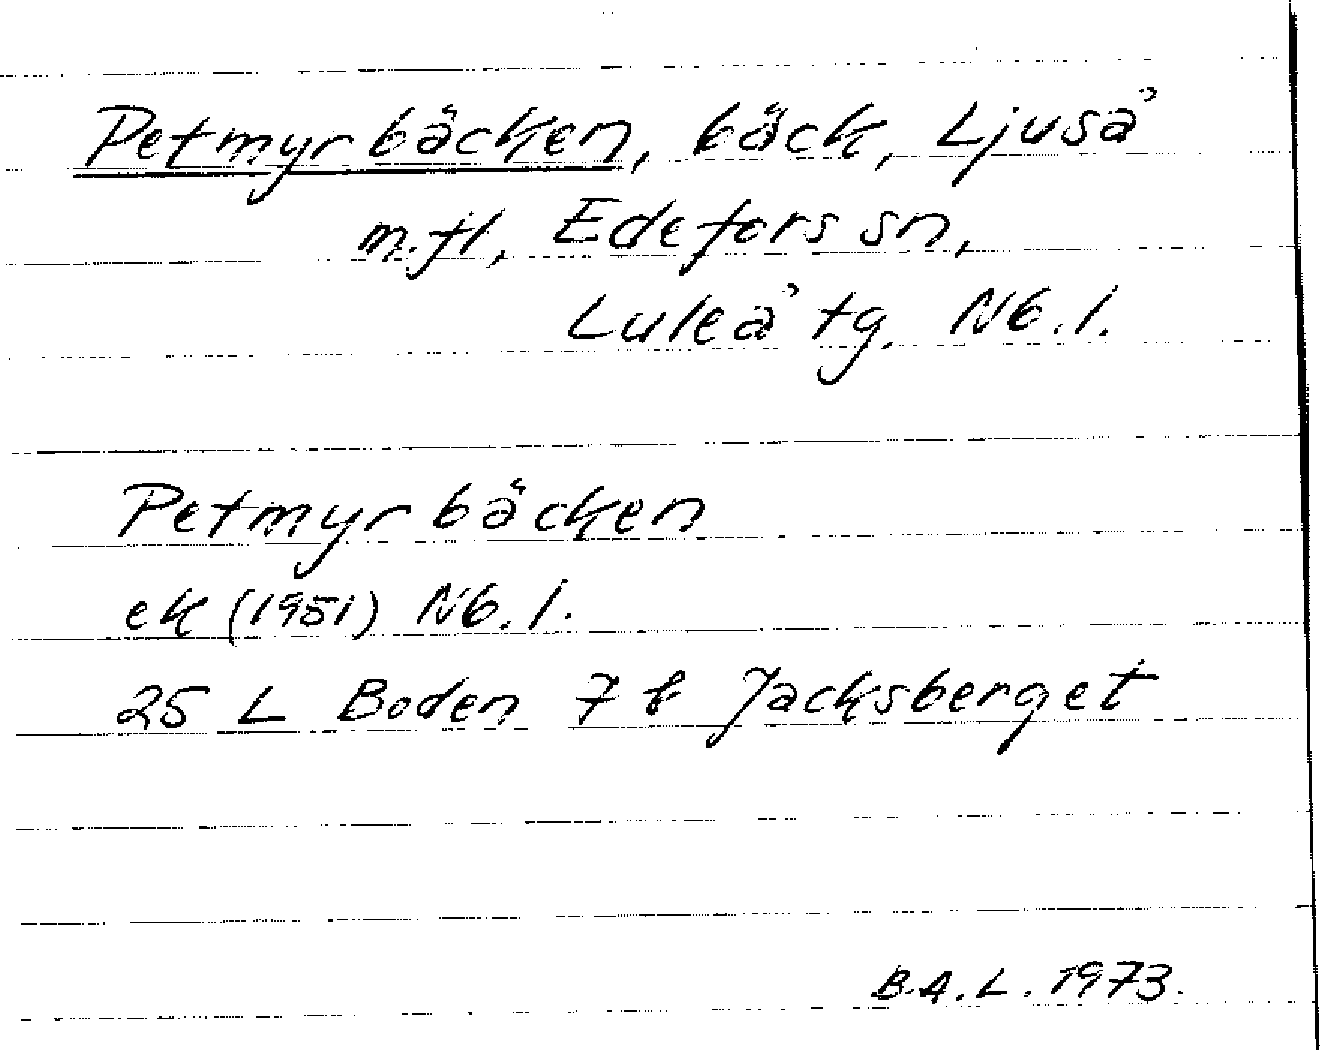 Petmyrbäcken, bäck, Ljuså
m.fl, Edefors sn,
Luleå tg. Nb.l.
Petmyrbäcken
ek (1951) Nb.l.
25 L Boden 7 b Jacksberget
B.A.L. 1973.